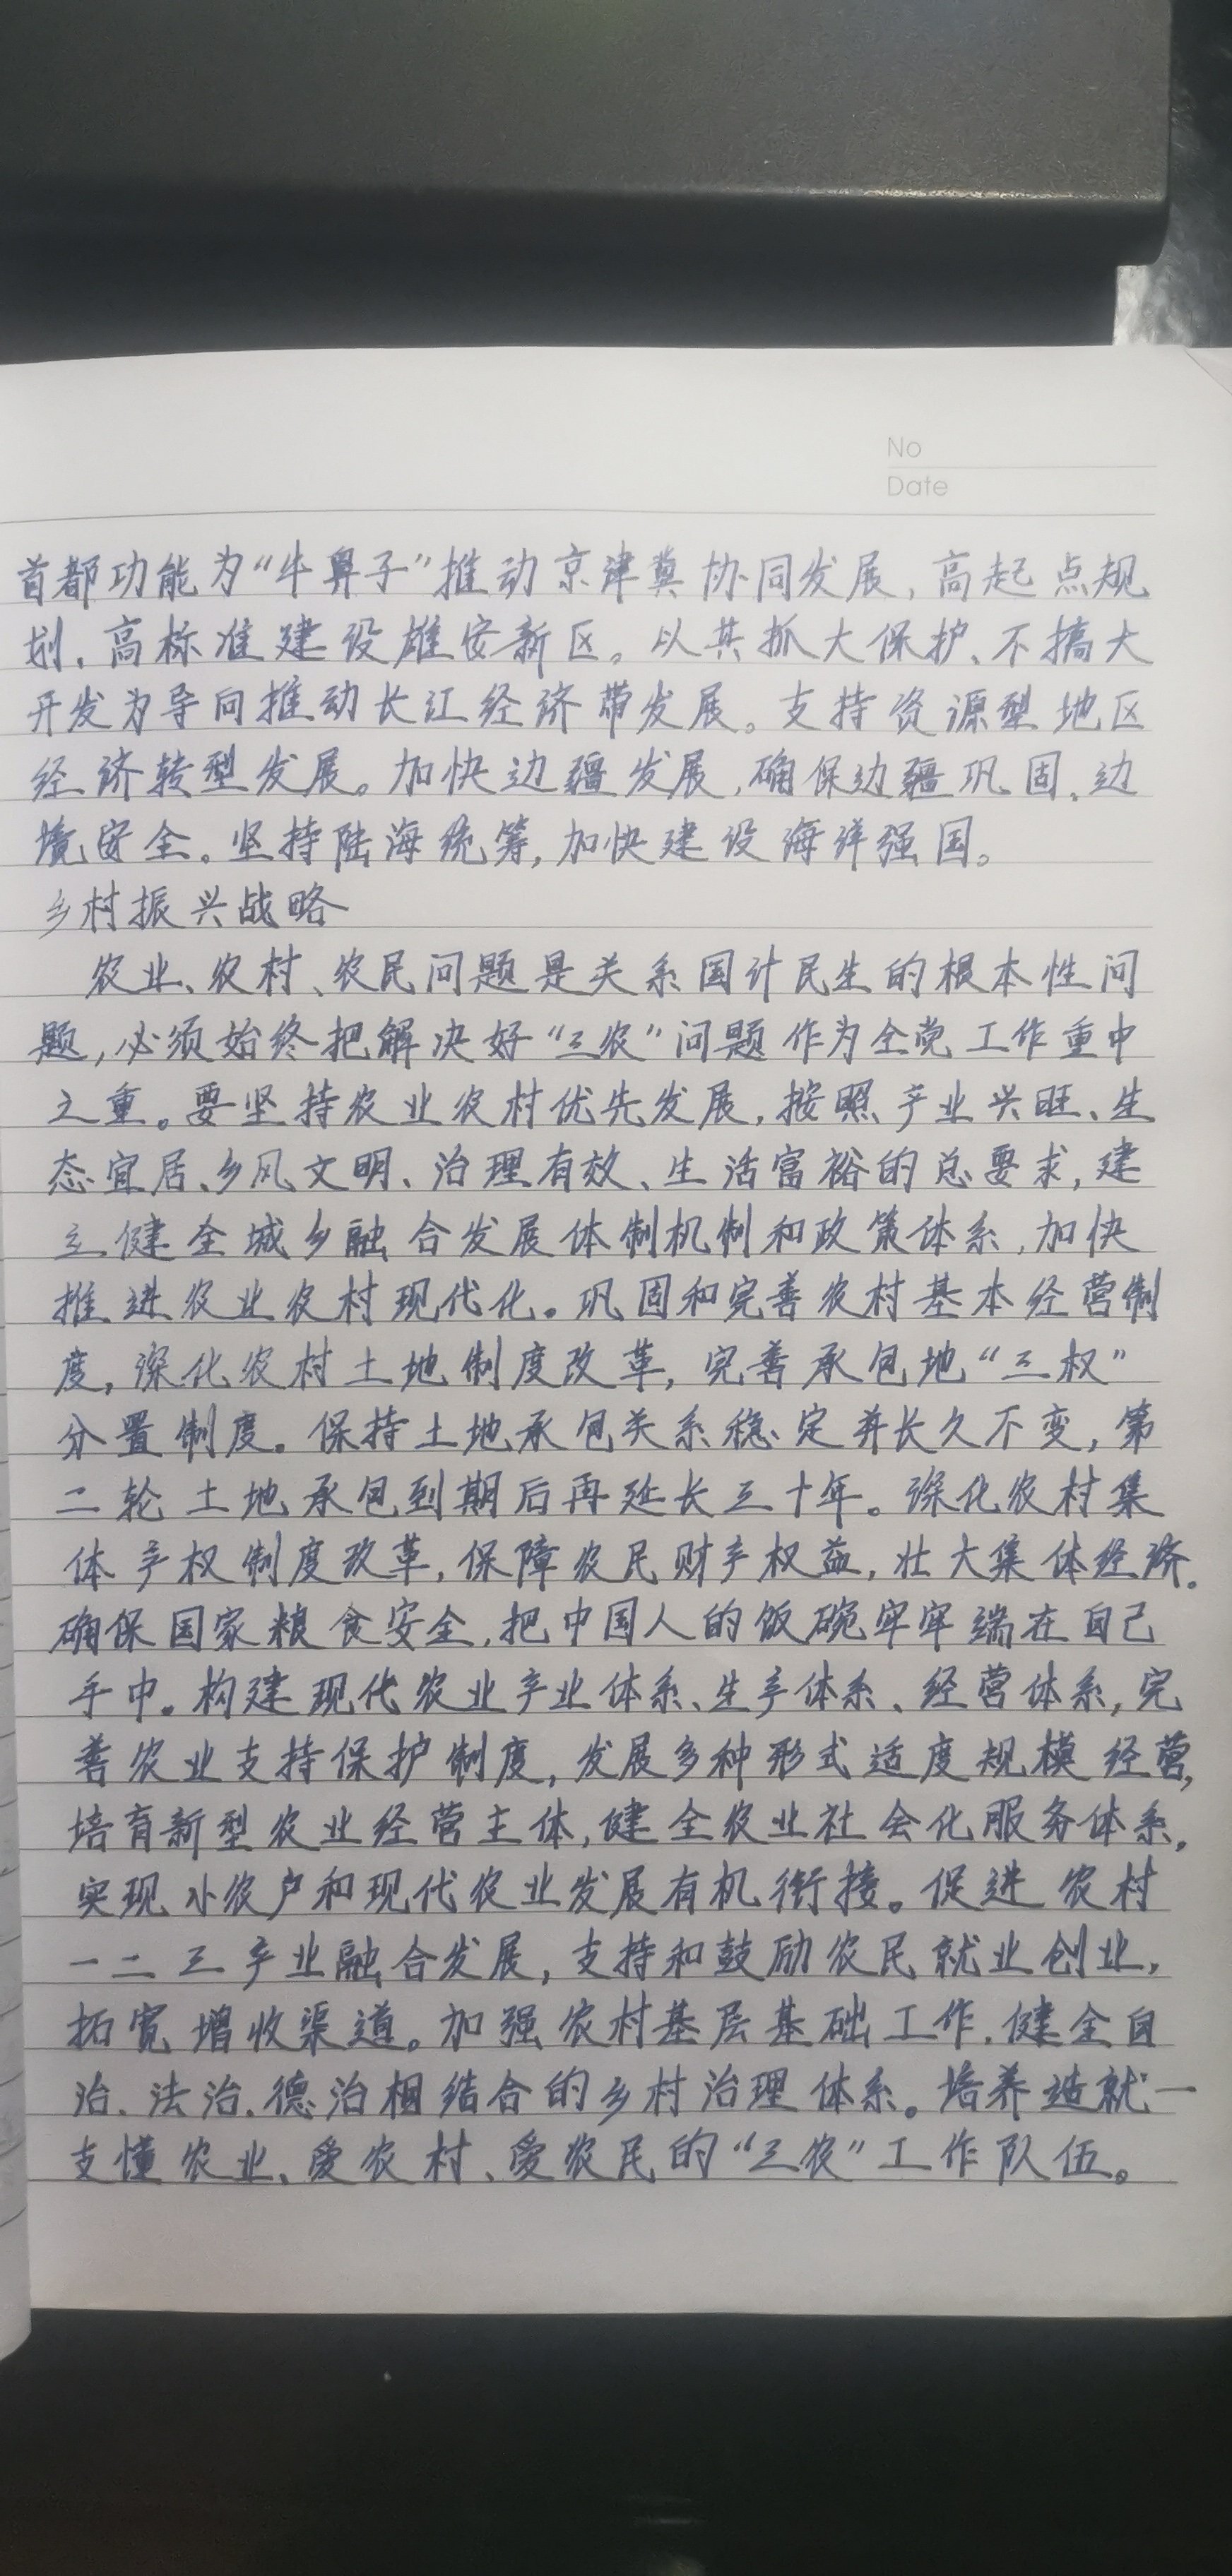 No
Date
首都功能为“牛鼻子”推动京津冀协同发展,高起点规
划、高标准建设雄安新区。以共抓大保护、不搞大
开发为导向推动长江经济带发展。支持资源型地区
经济转型发展。加快边疆发展,确保边疆巩固、边
境安全。坚持陆海统筹,加快建设海洋强国。
乡村振兴战略
农业、农村、农民问题是关系国计民生的根本性问
题,必须始终把解决好“三农”问题作为全党工作重中
之重。要坚持农业农村优先发展,按照产业兴旺、生
态宜居、乡风文明、治理有效、生活富裕的总要求,建
立健全城乡融合发展体制机制和政策体系,加快
推进农业农村现代化。巩固和完善农村基本经营制
度,深化农村土地制度改革,完善承包地“三权”
分置制度。保持土地承包关系稳定并长久不变,第
二轮土地承包到期后再延长三十年。深化农村集
体产权制度改革,保障农民财产权益,壮大集体经济。
确保国家粮食安全,把中国人的饭碗牢牢端在自己
手中。构建现代农业产业体系、生产体系、经营体系,完
善农业支持保护制度,发展多种形式适度规模经营,
培育新型农业经营主体,健全农业社会化服务体系,
实现小农户和现代农业发展有机衔接。促进农村
一二三产业融合发展,支持和鼓励农民就业创业,
拓宽增收渠道。加强农村基层基础工作,健全自
治、法治、德治相结合的乡村治理体系。培养造就一
支懂农业、爱农村、爱农民的“三农”工作队伍。